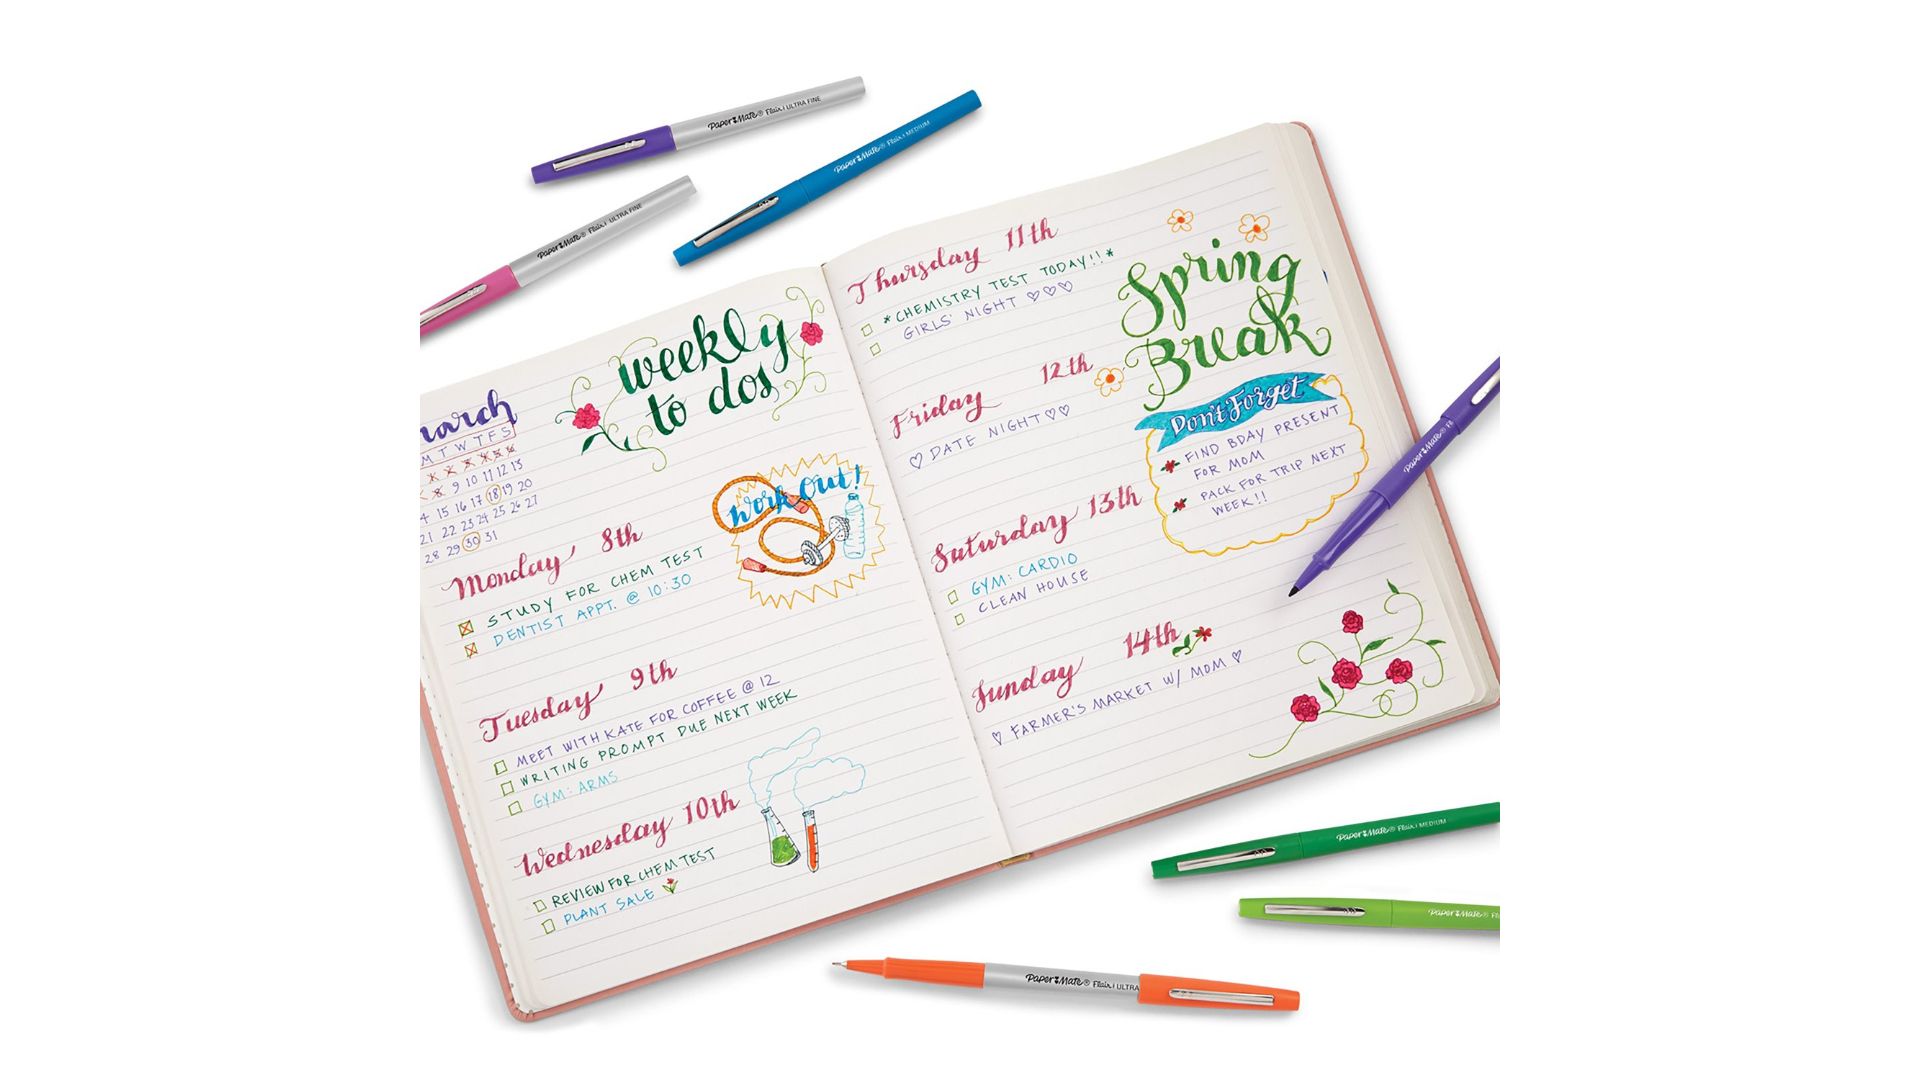 Paper Mate® Flair | ULTRA FINE
Paper Mate® Flair | MEDIUM
Paper Mate® Flair | ULTRA FINE
weekly
to dos
March
M T W T F S
9 10 11 12 13
15 16 17 18 19 20
21 22 23 24 25 26 27
28 29 30 31
Work Out!
Monday 8th
STUDY FOR CHEM TEST
DENTIST APPT. @ 10:30
Tuesday 9th
MEET WITH KATE FOR COFFEE @ 12
WRITING PROMPT DUE NEXT WEEK
GYM: ARMS
Wednesday 10th
REVIEW FOR CHEM TEST
PLANT SALE
Thursday 11th
* CHEMISTRY TEST TODAY!! *
GIRLS' NIGHT ♡♡♡
Friday 12th
♡ DATE NIGHT ♡♡
Saturday 13th
GYM: CARDIO
CLEAN HOUSE
Sunday 14th
♡ FARMER'S MARKET W/ MOM ♡
Spring
Break
Don't Forget
FIND BDAY PRESENT
FOR MOM
PACK FOR TRIP NEXT
WEEK!!
Paper Mate® Fl
Paper Mate® Flair | MEDIUM
Paper Mate® Fl
Paper Mate® Flair | ULTRA